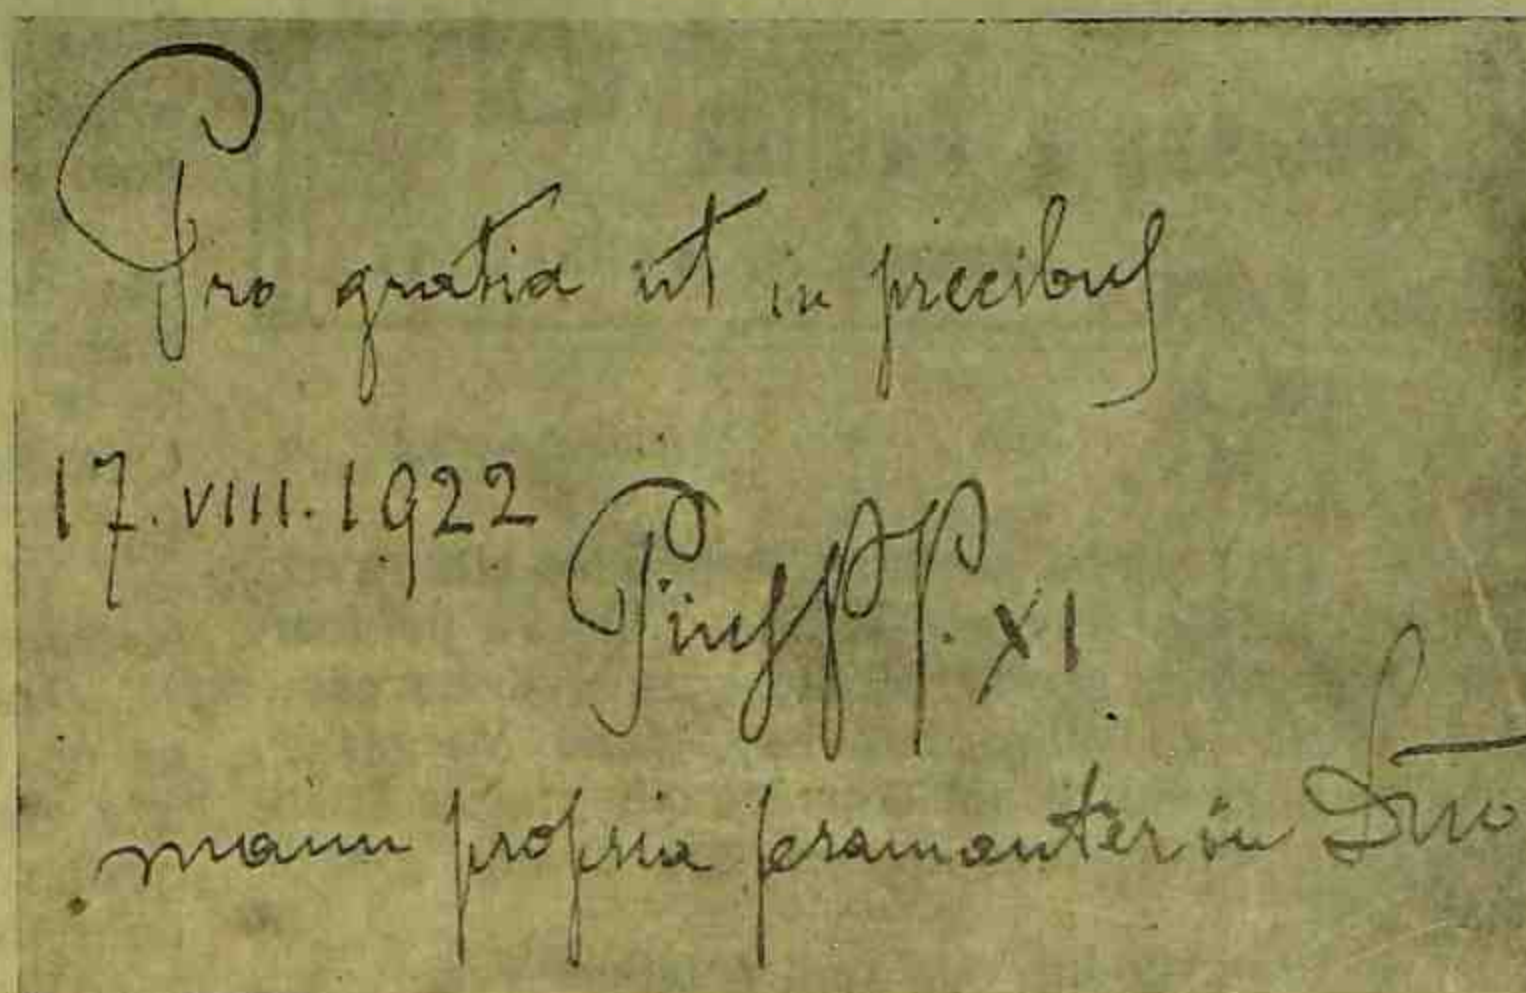 Pro gratia ut in precibus
17. VIII. 1922
Pius PP. XI
manu propria peramanter in Dno